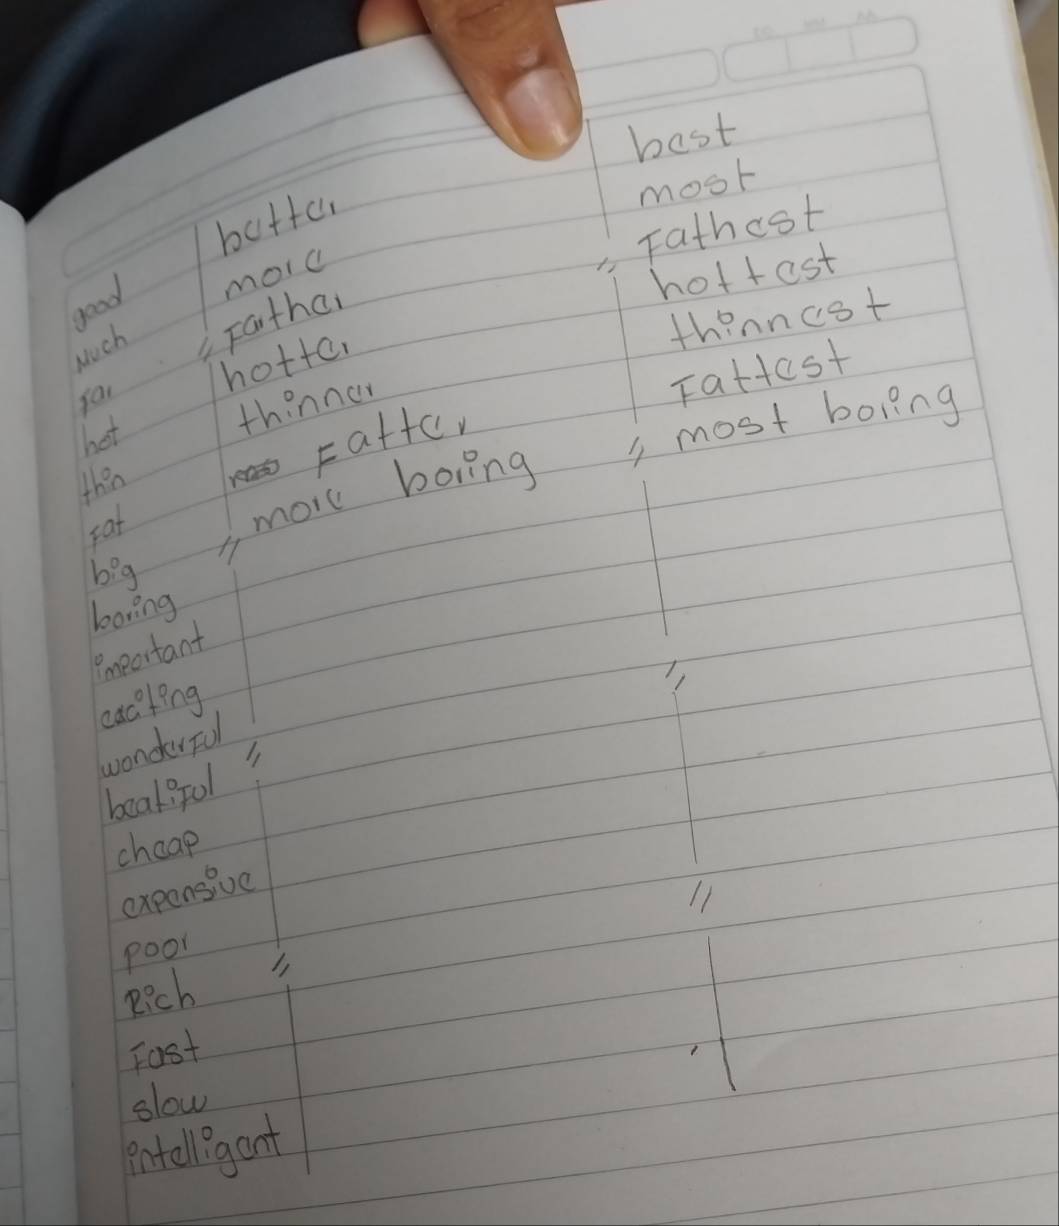 good better best
Much more most
Far Farther Fathest
hot hotter hottest
thin thinner thinnest
Fat Fatter Fattest
big more boring most boring
boring
important
exciting
wonderFul
beatiFul
cheap
expensive
poor
Rich
Fast
slow
intelligent